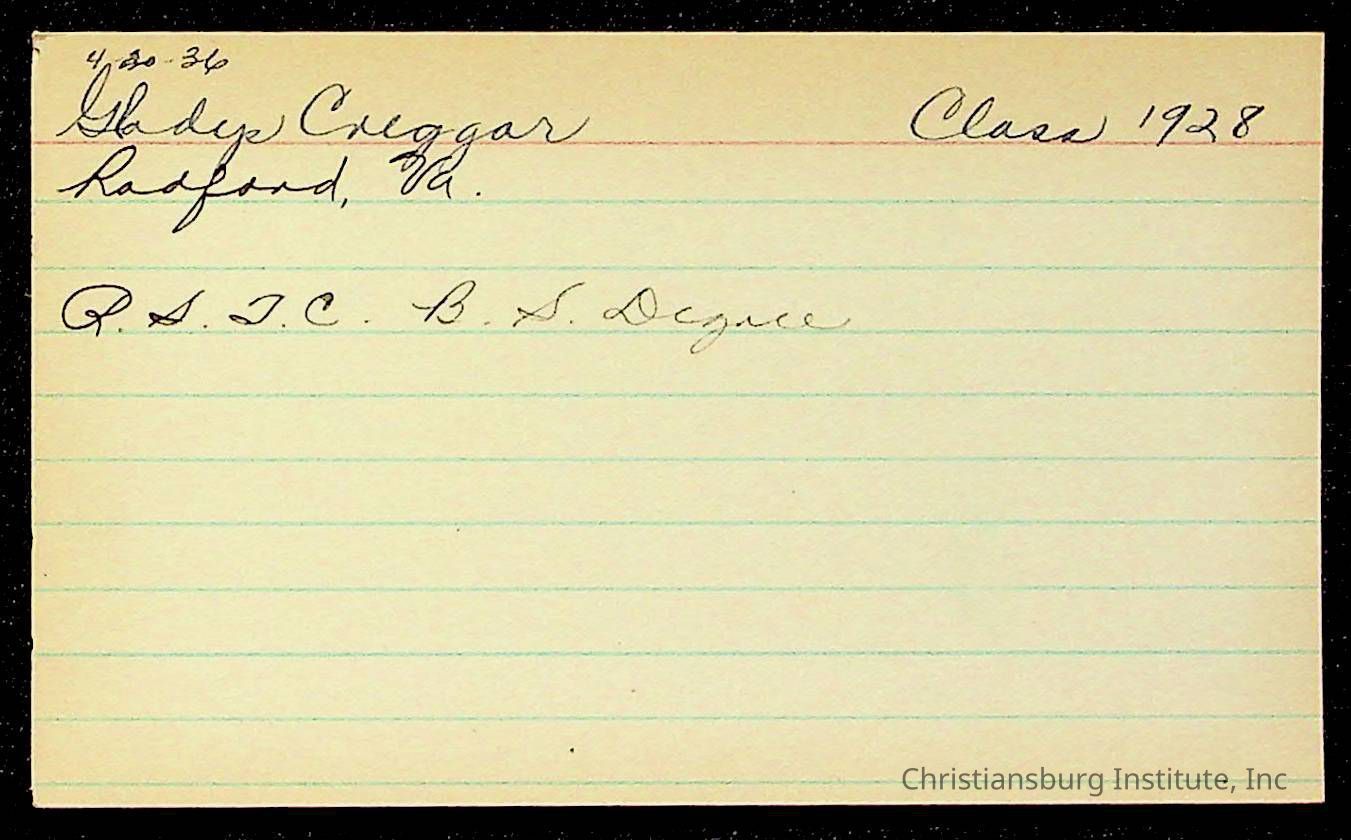 4-20-36
Gladys Creggar Class 1928
Radford, Va.
R. S. T. C. B. S. Degree
Christiansburg Institute, Inc